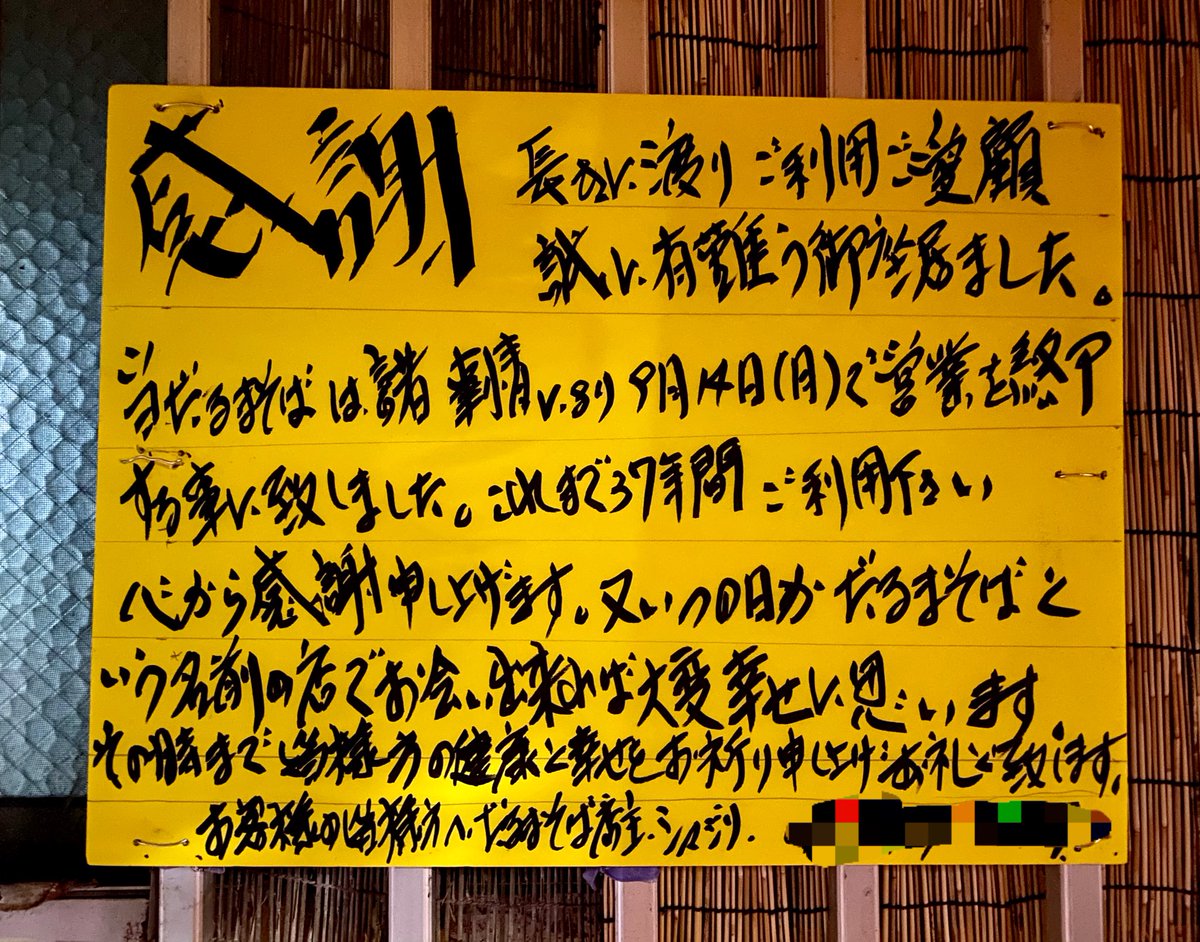 感謝
長きに渡りご利用ご愛顧
誠に有難う御座居ました。
当だるまそばは諸事情により9月14日(月)で営業を終了
する事に致しました。これまで37年間ご利用下さい
心から感謝申し上げます。又いつの日かだるまそばと
いう名前の店でお会い出来れば大変幸せに思います
その時まで皆様方の健康と幸せをお祈り申し上げお礼と致します。
お客様の皆様方へ だるまそば店主